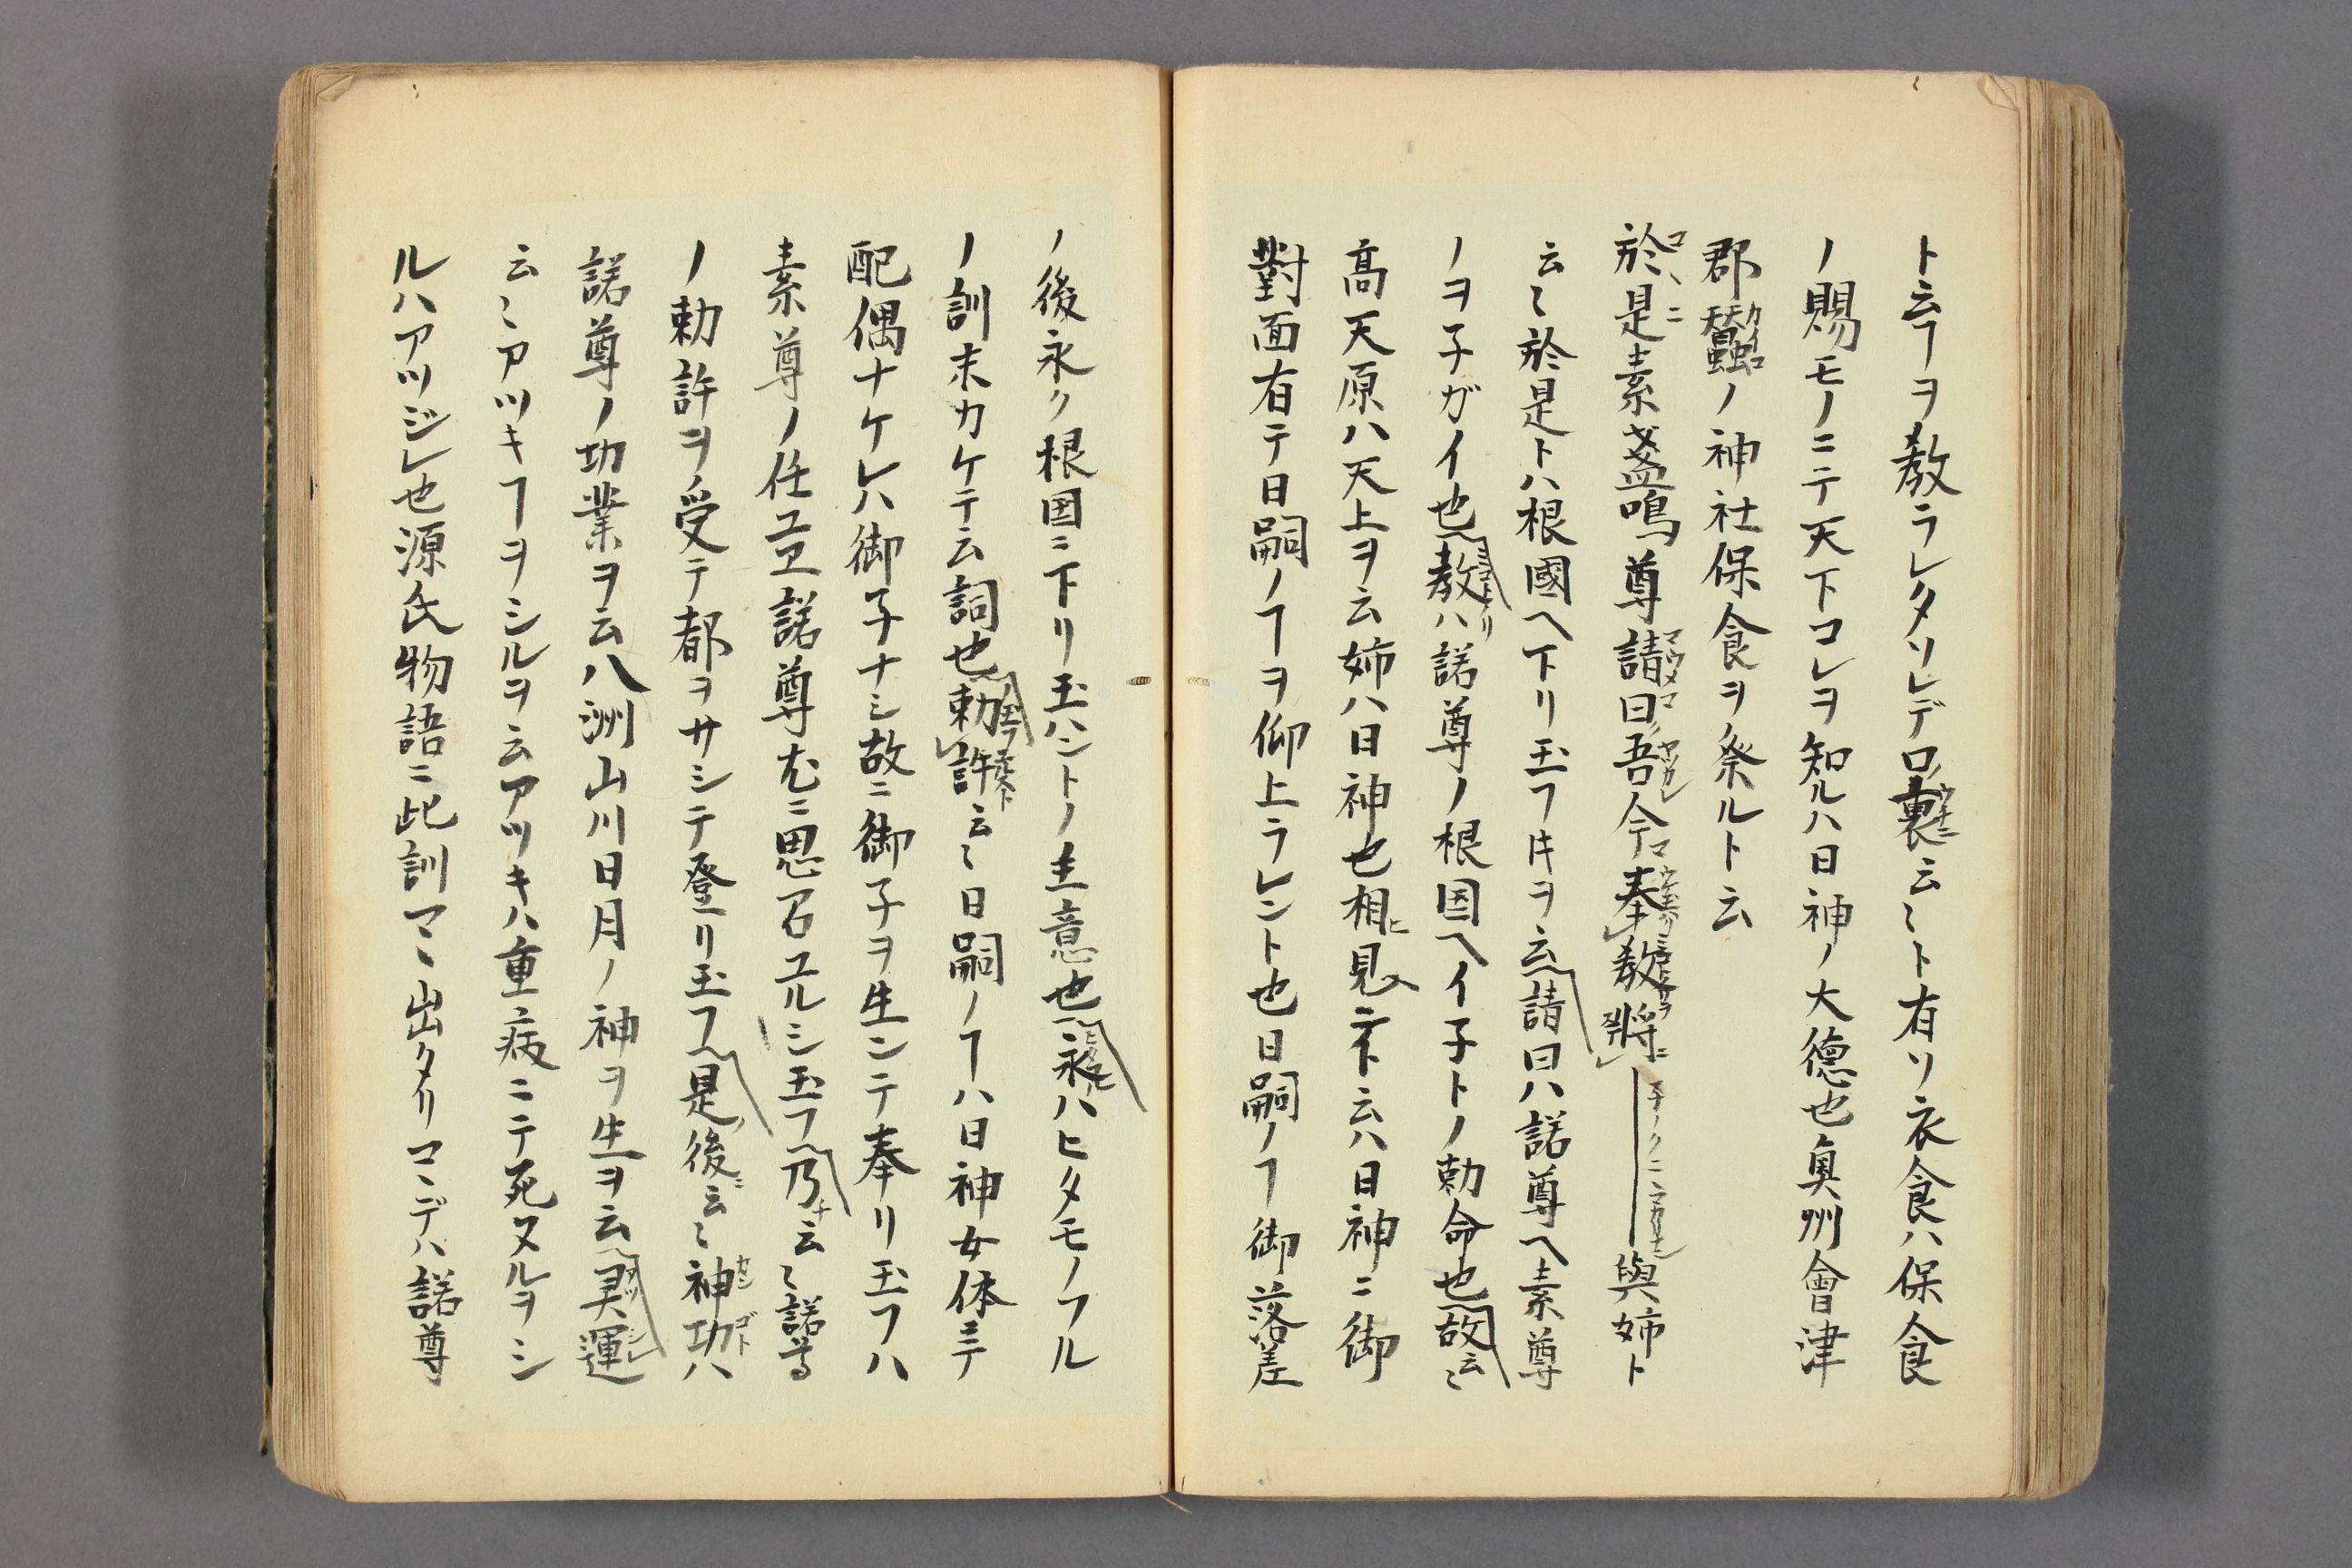 ト云ヿヲ教ラレタソレデ口ノ裏(ウチニ)云〻ト有リ衣食ハ保食
ノ賜モノニテ天下コレヲ知ルハ日神ノ大徳也奥州會津
郡蠶(カイコ)ノ神社保食ヲ祭ルト云
於(コヽニ)是素盞鳴尊請曰吾今奉教將與姉ト
云〻於是トハ根國ヘ下リ玉フ𪜈ヲ云請曰ハ諾尊ヘ素尊
ノヲ子ガイ也教ハ諾尊ノ根国ヘイ子トノ勅命也故云〻
高天原ハ天上ヲ云姉ハ日神也相見ト云ハ日神ニ御
對面有テ日嗣ノヿヲ仰上ラレント也日嗣ノヿ御落差
ノ後永ク根国ニ下リ玉ハントノ主意也永ハヒタモノフル
ノ訓末カケテ云詞也勅許云〻日嗣ノヿハ日神女体ニテ
配偶ナケレハ御子ナシ故ニ御子ヲ生ンテ奉リ玉フハ
素尊ノ任ユヱ諾尊尤ニ思召ユルシ玉フ乃云〻諾尊
ノ勅許ヲ受テ都ヲサシテ登リ玉フ是後ニ云〻神功(カンゴト)ハ
諾尊ノ功業ヲ云八洲山川日月ノ神ヲ生ヲ云灵運
云〻アツキヿヲシルヲ云アツキハ重病ニテ死ヌルヲシ
ルハアツジレ也源氏物語ニ此訓マヽ出タリコヽデハ諾尊